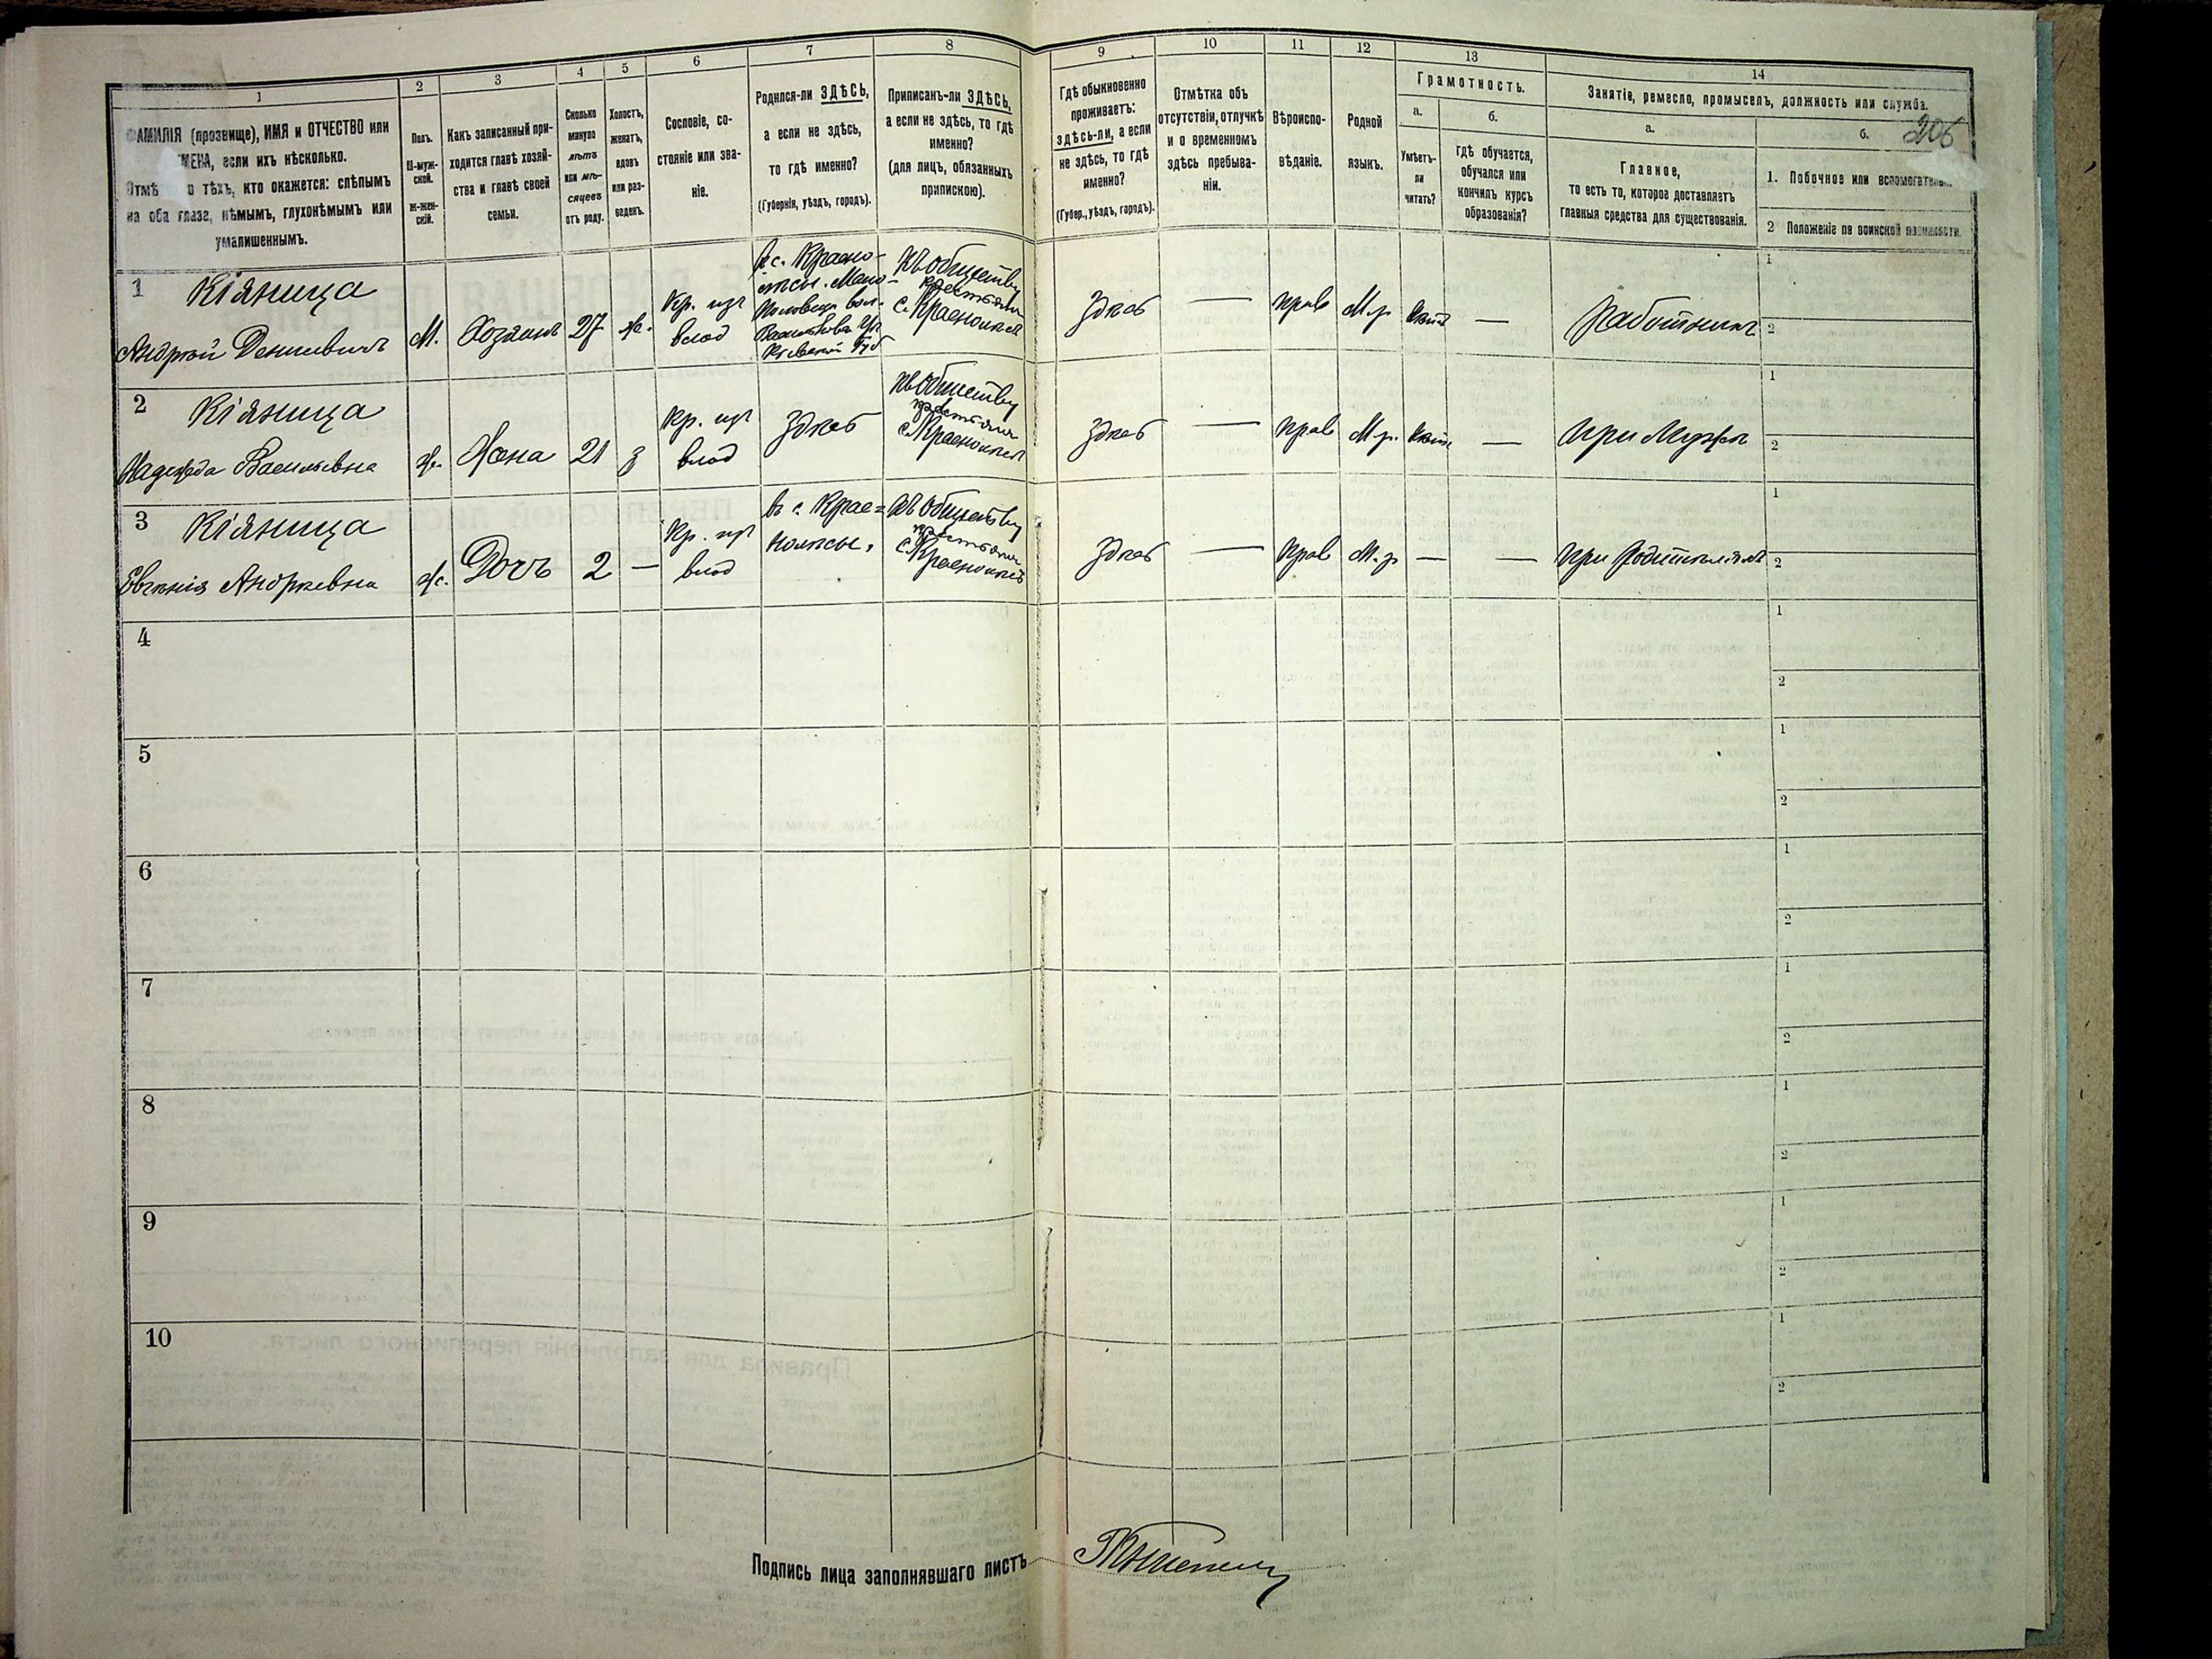 1
2
3
4
5
6
7
8
9
10
11
12
13
14
ФАМИЛІЯ (прозвище), ИМЯ и ОТЧЕСТВО или
МЕНА, если ихъ нѣсколько.
Отмѣ о тѣхъ, кто окажется: слѣпымъ
на оба глаза, нѣмымъ, глухонѣмымъ или
умалишеннымъ.
Полъ.
М-муж-
ской.
Ж-жен-
скій.
Какъ записанный при-
ходится главѣ хозяй-
ства и главѣ своей
семьи.
Сколько
минуло
лѣтъ
или мѣ-
сяцевъ
отъ роду.
Холостъ,
женатъ,
вдовъ
или раз-
веденъ.
Сословіе, со-
стояніе или зва-
ніе.
Родился-ли ЗДѢСЬ,
а если не здѣсь,
то гдѣ именно?
(Губернія, уѣздъ, городъ).
Приписанъ-ли ЗДѢСЬ,
а если не здѣсь, то гдѣ
именно?
(для лицъ, обязанныхъ
припискою).
Гдѣ обыкновенно
проживаетъ:
здѣсь-ли, а если
не здѣсь, то гдѣ
именно?
(Губер., уѣздъ, городъ).
Отмѣтка объ
отсутствіи, отлучкѣ
и о временномъ
здѣсь пребыва-
ніи.
Вѣроиспо-
вѣданіе.
Родной
языкъ.
Грамотность.
а.
Умѣетъ-
ли
читать?
б.
Гдѣ обучается,
обучался или
кончилъ курсъ
образованія?
Занятіе, ремесло, промыселъ, должность или служба.
а.
Главное,
то есть то, которое доставляетъ
главныя средства для существованія.
б.
206
1. Побочное или вспомогательн.
2 Положеніе по воинской повинности.
1 Кіяница
Андрей Денисовичъ
М. Хозяинъ 27 ж.
Кр. изъ
влад
Здѣсь — прав М.р — Работникъ
къ обществу
крестьянъ
1
2
2 Кіяница
Надежда Васильевна
ж. Жена 21 з
Кр. изъ
влад
Здѣсь
къ обществу
крестьянъ
Здѣсь — прав М.р. — при Мужѣ
1
2
3 Кіяница
Евгенія Андреевна
ж. Дочь 2 —
Кр. изъ
влад
къ обществу
крестьянъ
Здѣсь — прав М.р — — при Родителяхъ
1
2
4
1
2
5
1
2
6
1
2
7
1
2
8
1
2
9
1
2
10
1
2
Подпись лица заполнявшаго листъ